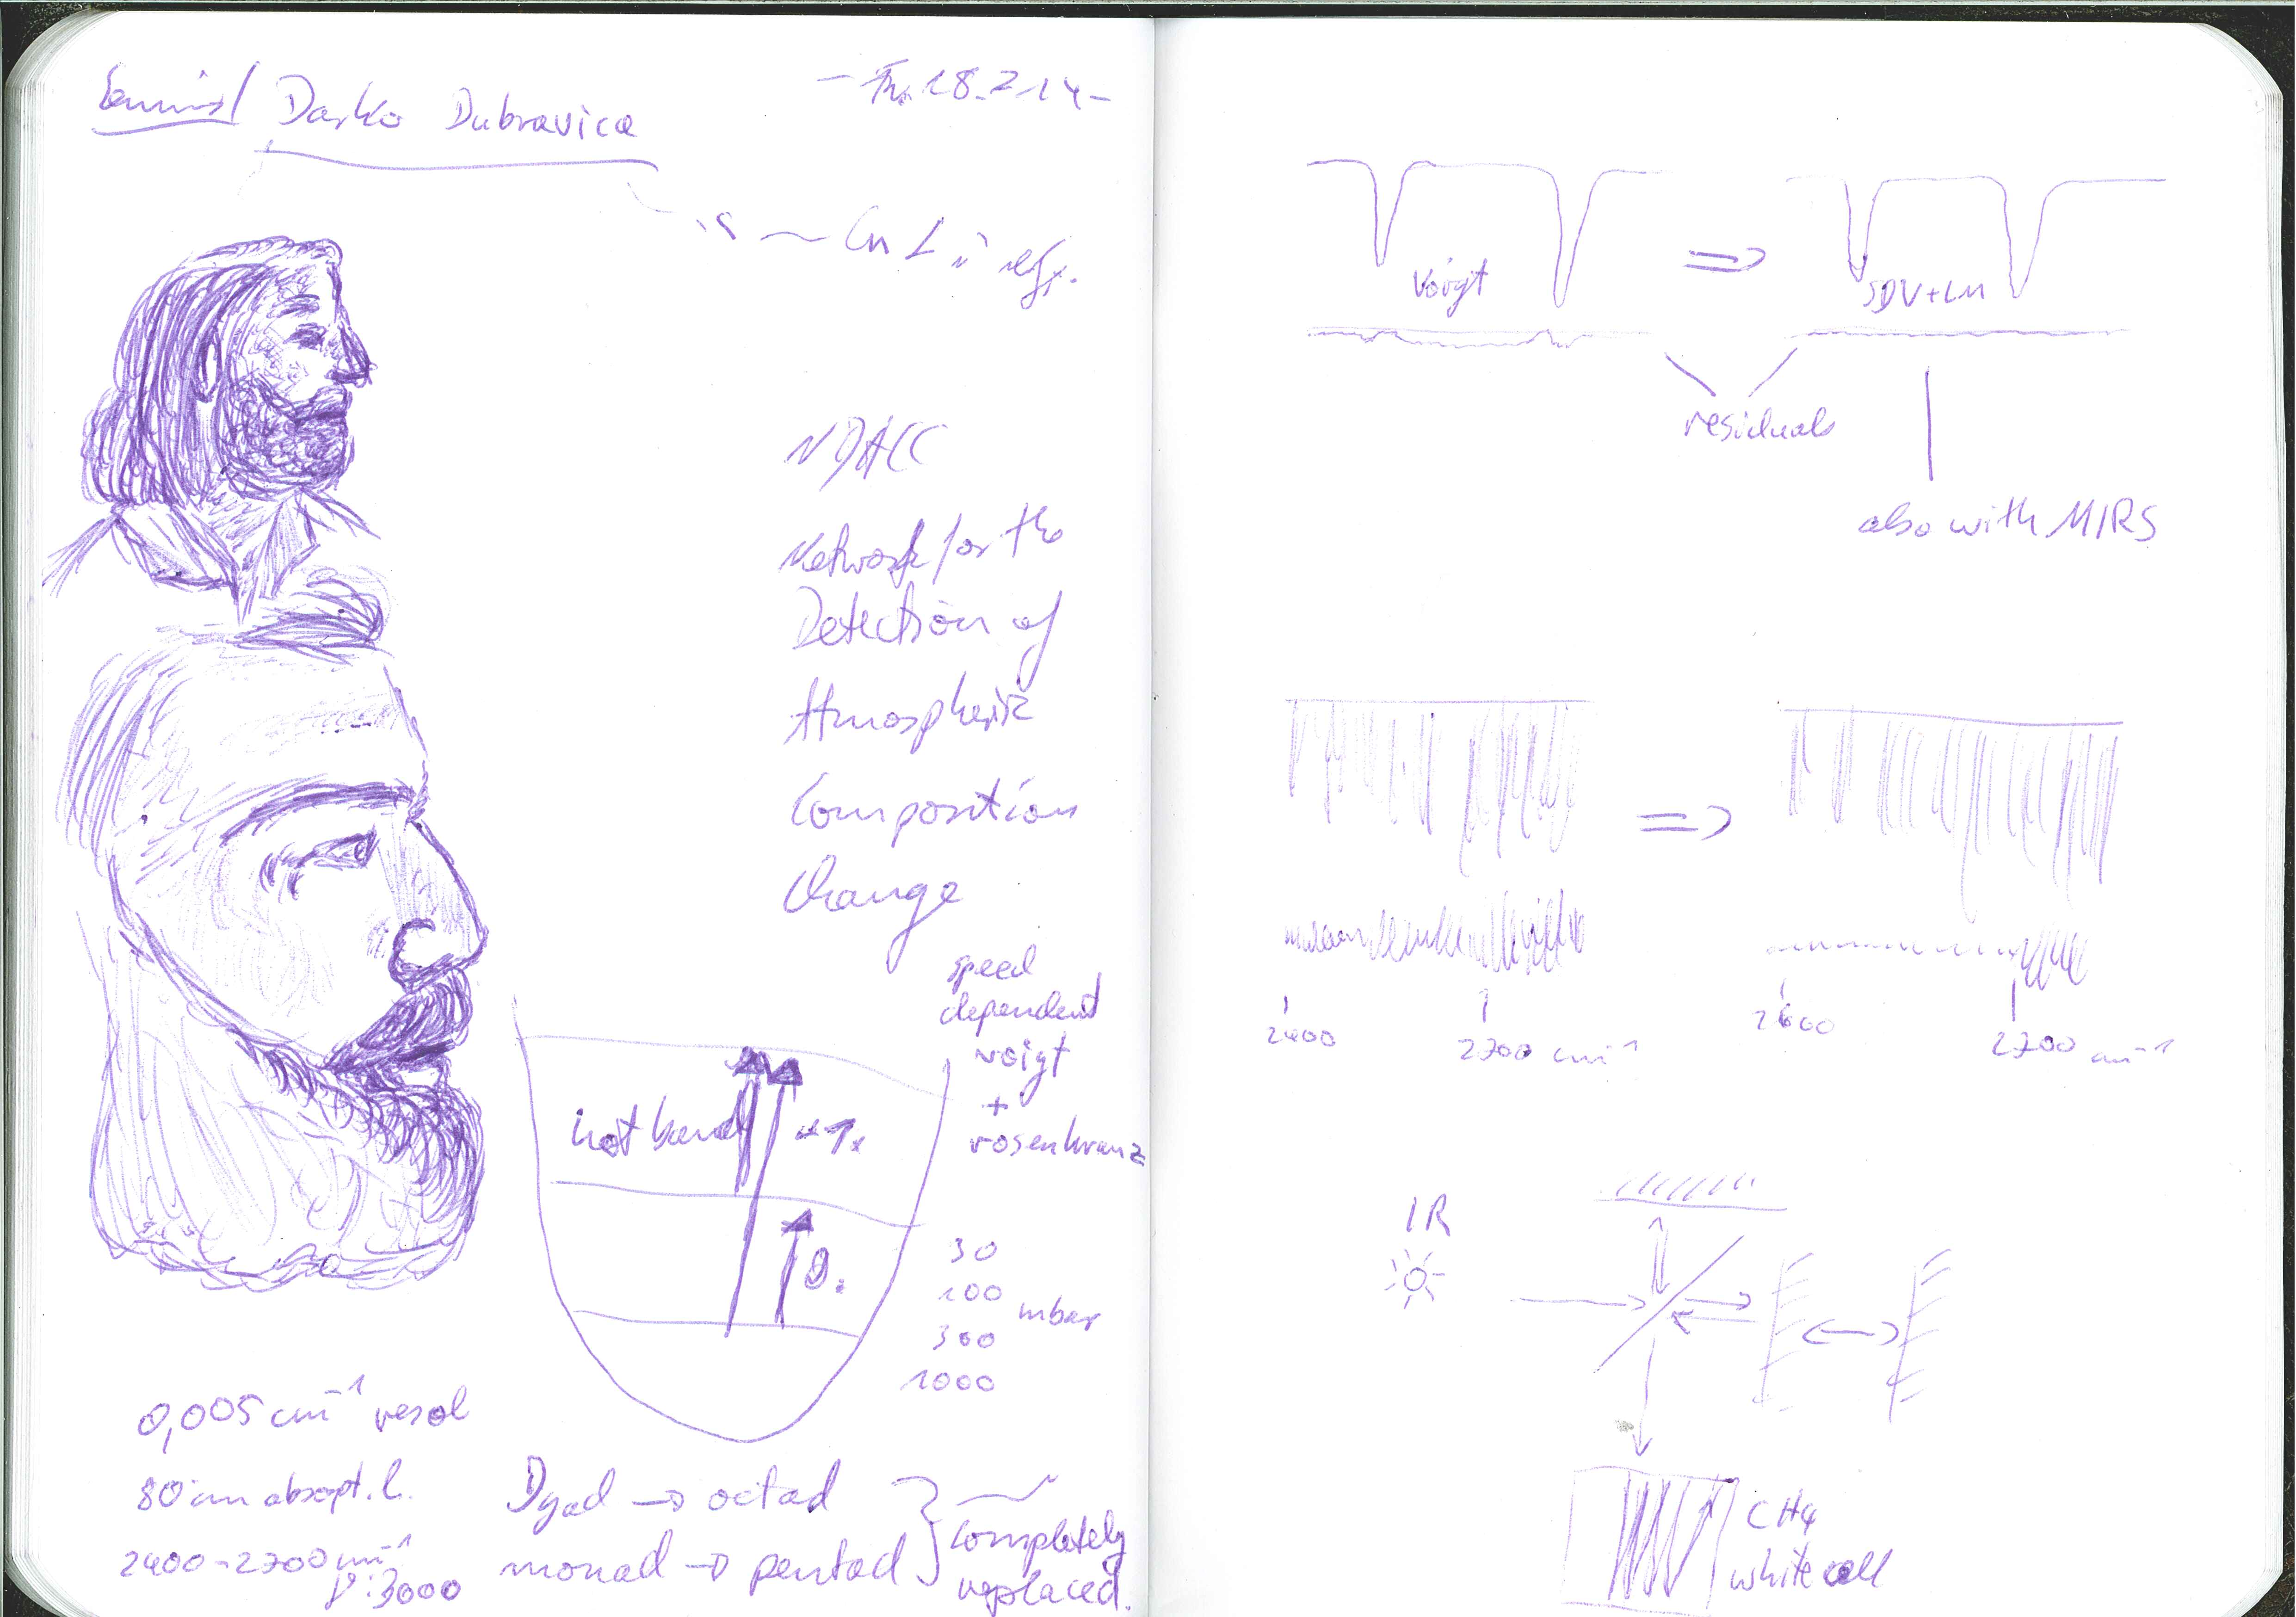 Darko Dubravica
NDACC
Network for the
Detection of
Atmospheric
Composition
Change
speed
dependent
voigt
+
rosenkranz
hot band
30
100 mbar
300
1000
0,005 cm⁻¹ resol
80 cm absorpt. l.
Dyad → octad
monad → pentad
completely
replaced.
Voigt
⇒
SDV+LM
residuals
also with MIRS
⇒
2400
2700 cm⁻¹
2700 cm⁻¹
IR
CH4
white cell